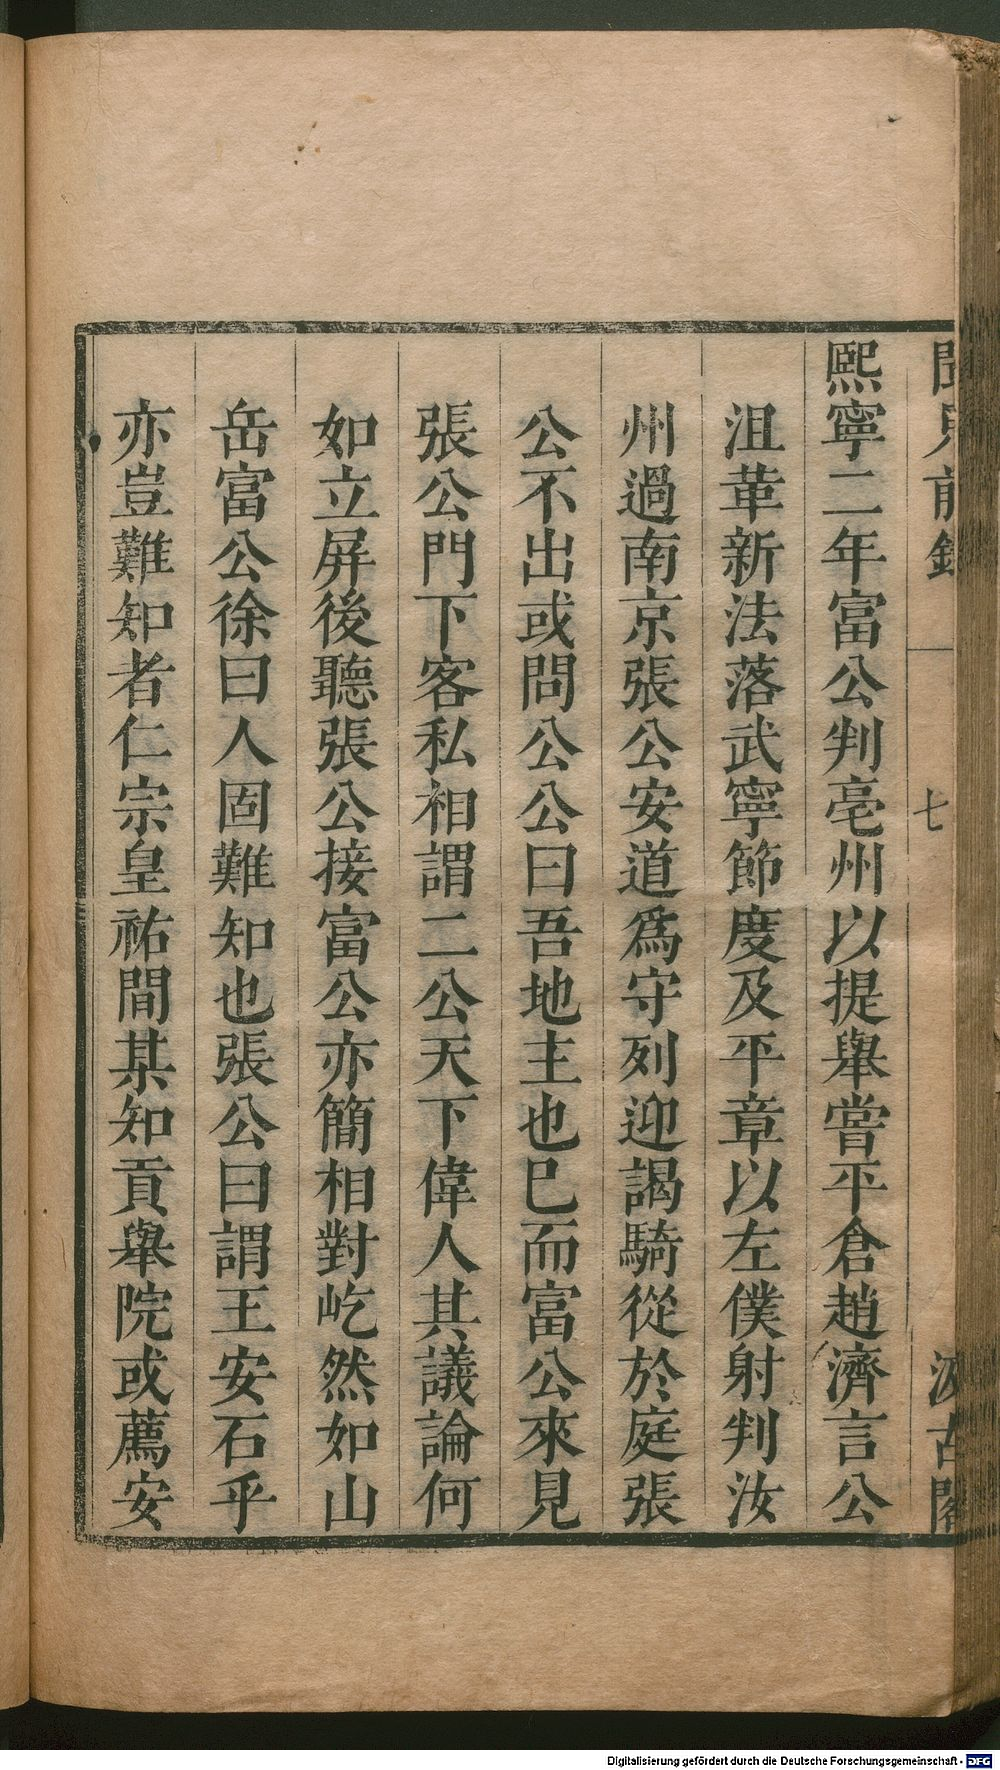 聞見前錄 七 汲古閣
熙寧二年富公判亳州以提舉嘗平倉趙濟言公
沮革新法落武寧節度及平章以左僕射判汝
州過南京張公安道爲守列迎謁騎從於庭張
公不出或問公公曰吾地主也已而富公來見
張公門下客私相謂二公天下偉人其議論何
如立屏後聽張公接富公亦簡相對屹然如山
岳富公徐曰人固難知也張公曰謂王安石乎
亦豈難知者仁宗皇祐間某知貢舉院或薦安
Digitalisierung gefördert durch die Deutsche Forschungsgemeinschaft - DFG